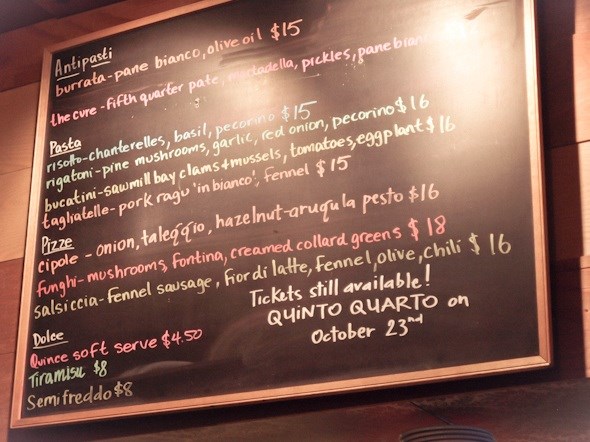 Antipasti
burrata-pane bianco, olive oil $15
the cure - fifth quarter pate, mortadella, pickles, pane bianco
Pasta
risotto-chanterelles, basil, pecorino $15
rigatoni-pine mushrooms, garlic, red onion, pecorino $16
bucatini-sawmill bay clams & mussels, tomatoes, eggplant $16
tagliatelle-pork ragu 'in bianco', fennel $15
Pizze
cipole - onion, taleggio, hazelnut-arugula pesto $16
funghi-mushrooms, fontina, creamed collard greens $18
salsiccia-fennel sausage, fior di latte, fennel, olive, chili $16
Tickets still available!
QUINTO QUARTO on
October 23nd
Dolce
Quince soft serve $4.50
Tiramisu $8
Semifreddo $8